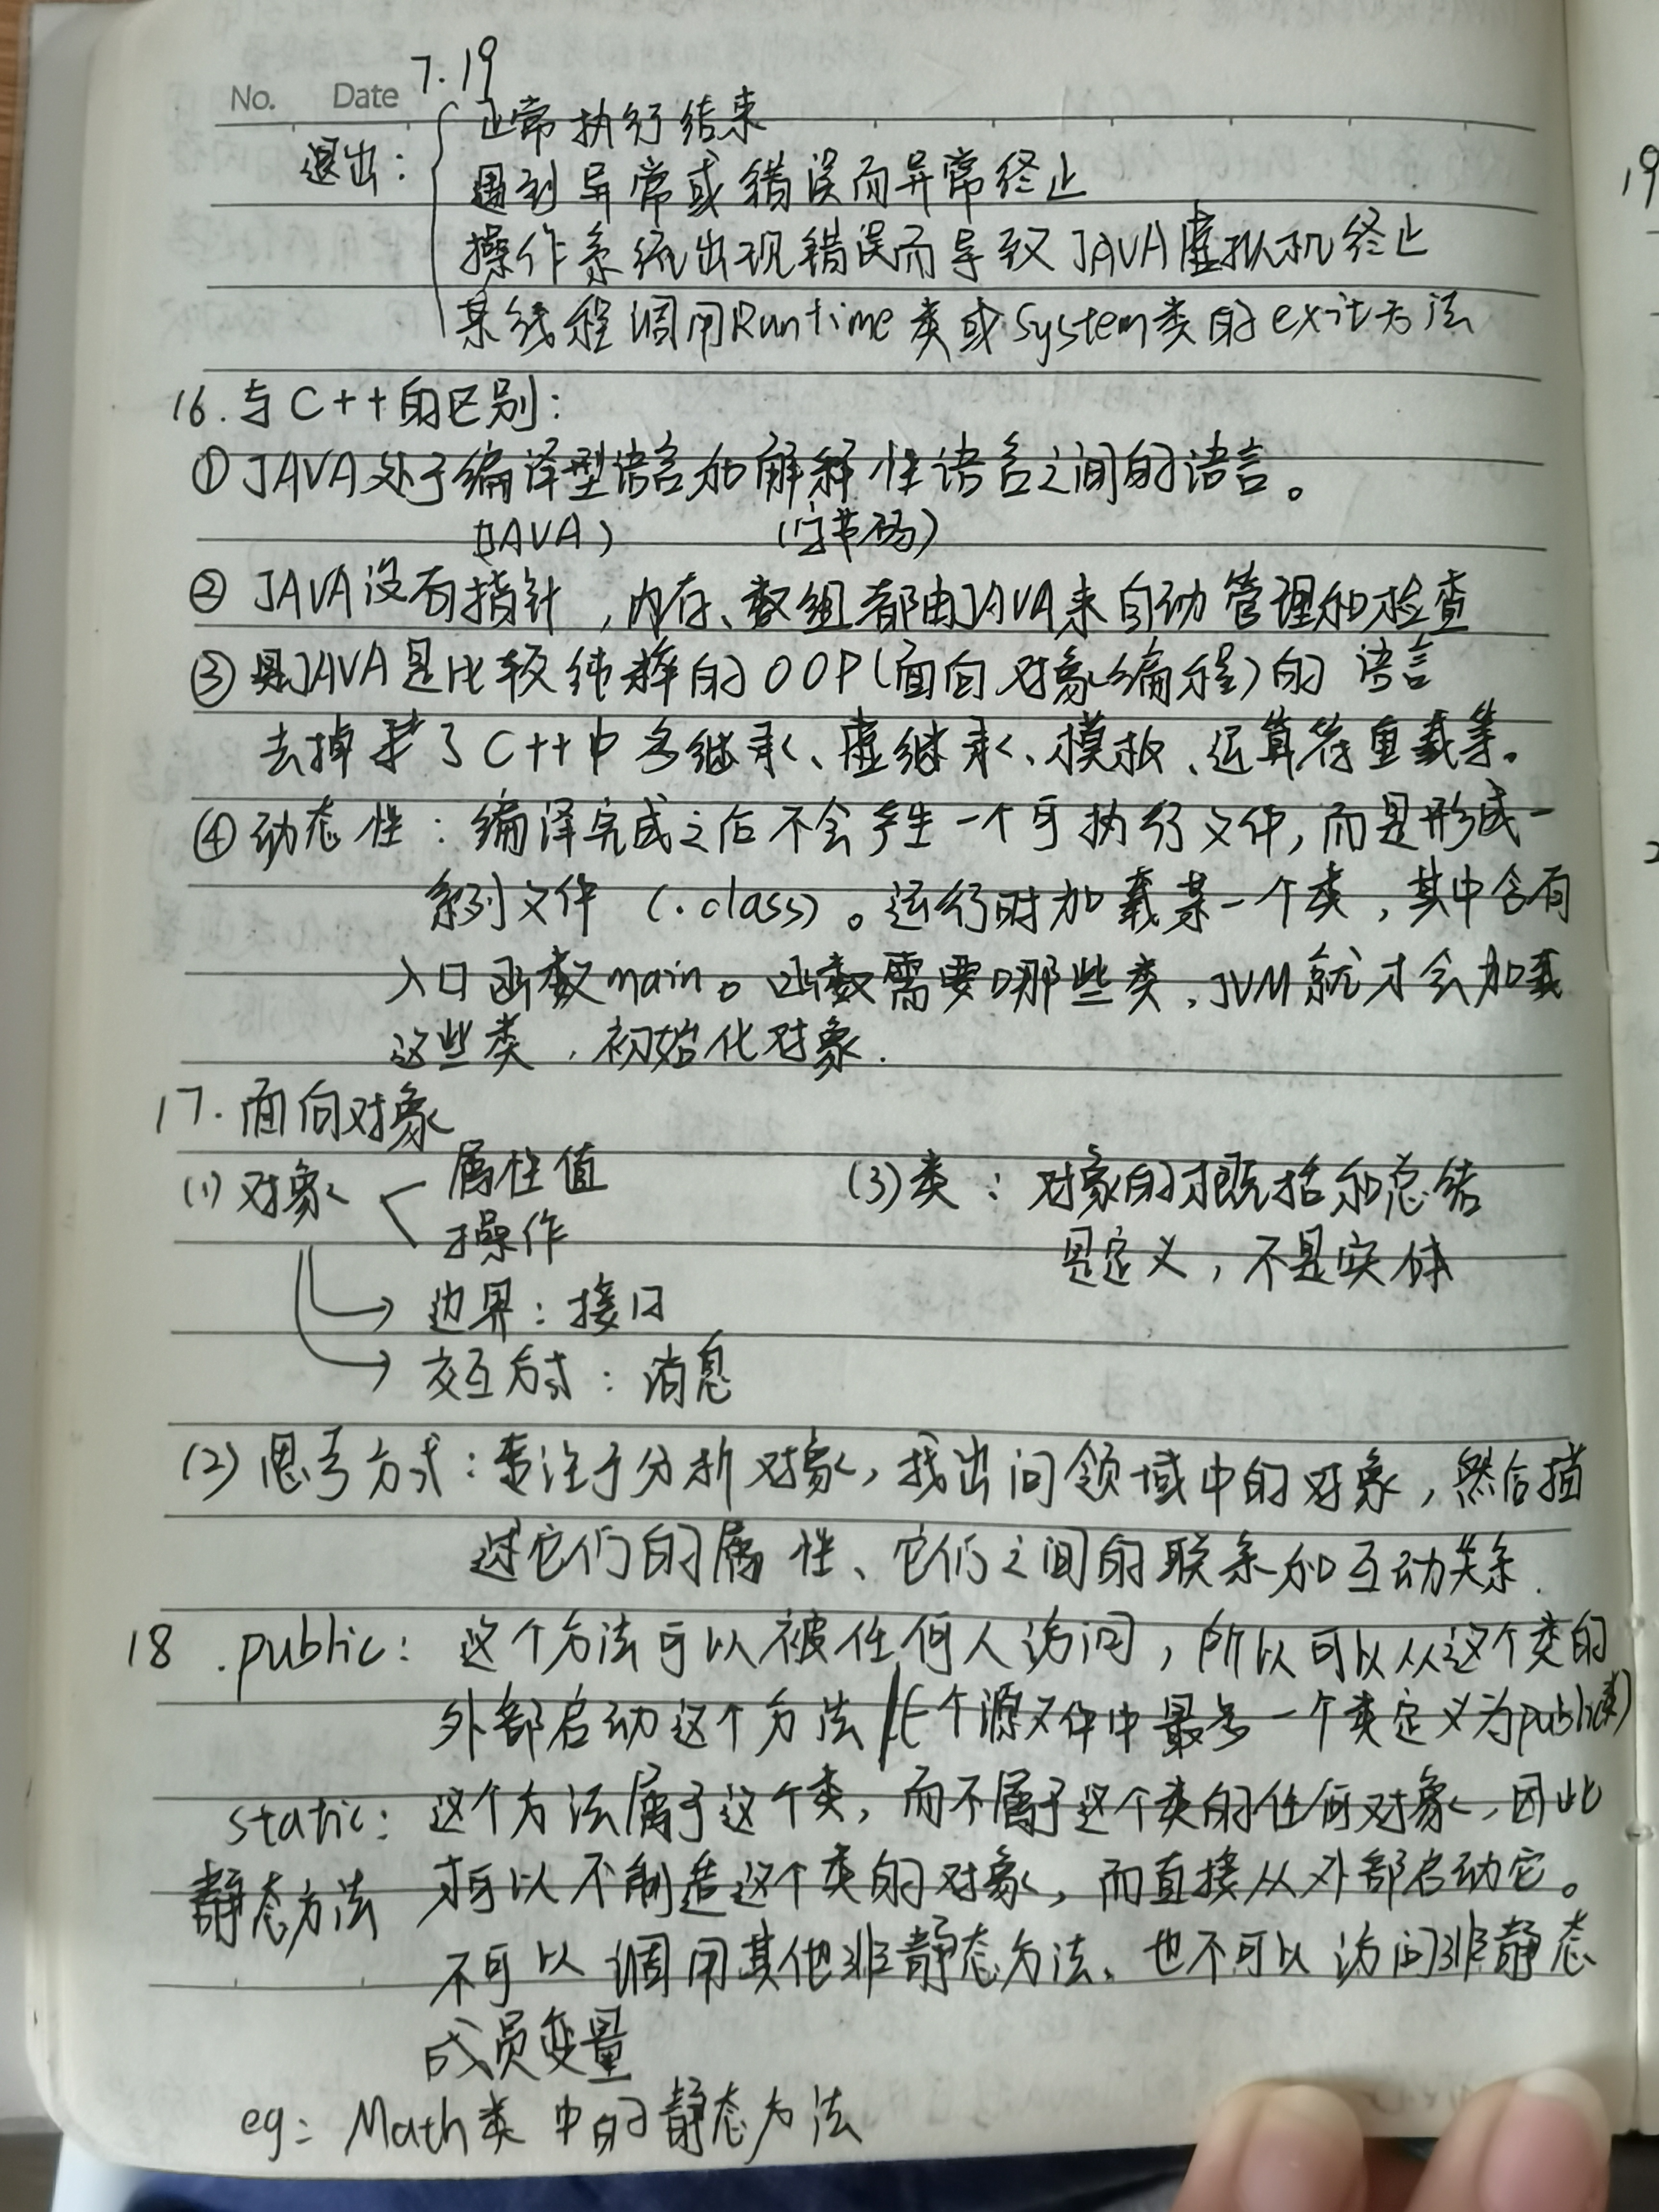 7.19
No. Date
退出：
正常执行结束
遇到异常或错误而异常终止
操作系统出现错误而导致JAVA虚拟机终止
某线程调用Runtime类或System类的exit方法
16.与C++的区别：
①JAVA处于编译型语言和解释性语言之间的语言。
(JAVA) (字节码)
②JAVA没有指针，内存、数组都由JAVA来自动管理和检查
③JAVA是比较纯粹的OOP(面向对象编程)的语言
去掉了C++中多继承、虚继承、模板、运算符重载等。
④动态性：编译完成之后不会产生一个可执行文件，而是形成一
系列文件(.class)。运行时加载某一个类，其中含有
入口函数main。函数需要哪些类，JVM就才会加载
这些类，初始化对象.
17.面向对象
(1)对象 属性值
操作
边界：接口
交互方式：消息
(3)类：对象的概括和总结
是定义，不是实体
(2)思考方式：专注于分析对象，找出问领域中的对象，然后描
述它们的属性、它们之间的联系和互动关系.
18.public：这个方法可以被任何人访问，所以可以从这个类的
外部启动这个方法 (一个源文件中最多一个类定义为public类)
static：这个方法属于这个类，而不属于这个类的任何对象，因此
静态方法 可以不制造这个类的对象，而直接从外部启动它。
不可以调用其他非静态方法、也不可以访问非静态
成员变量
eg：Math类中的静态方法
19